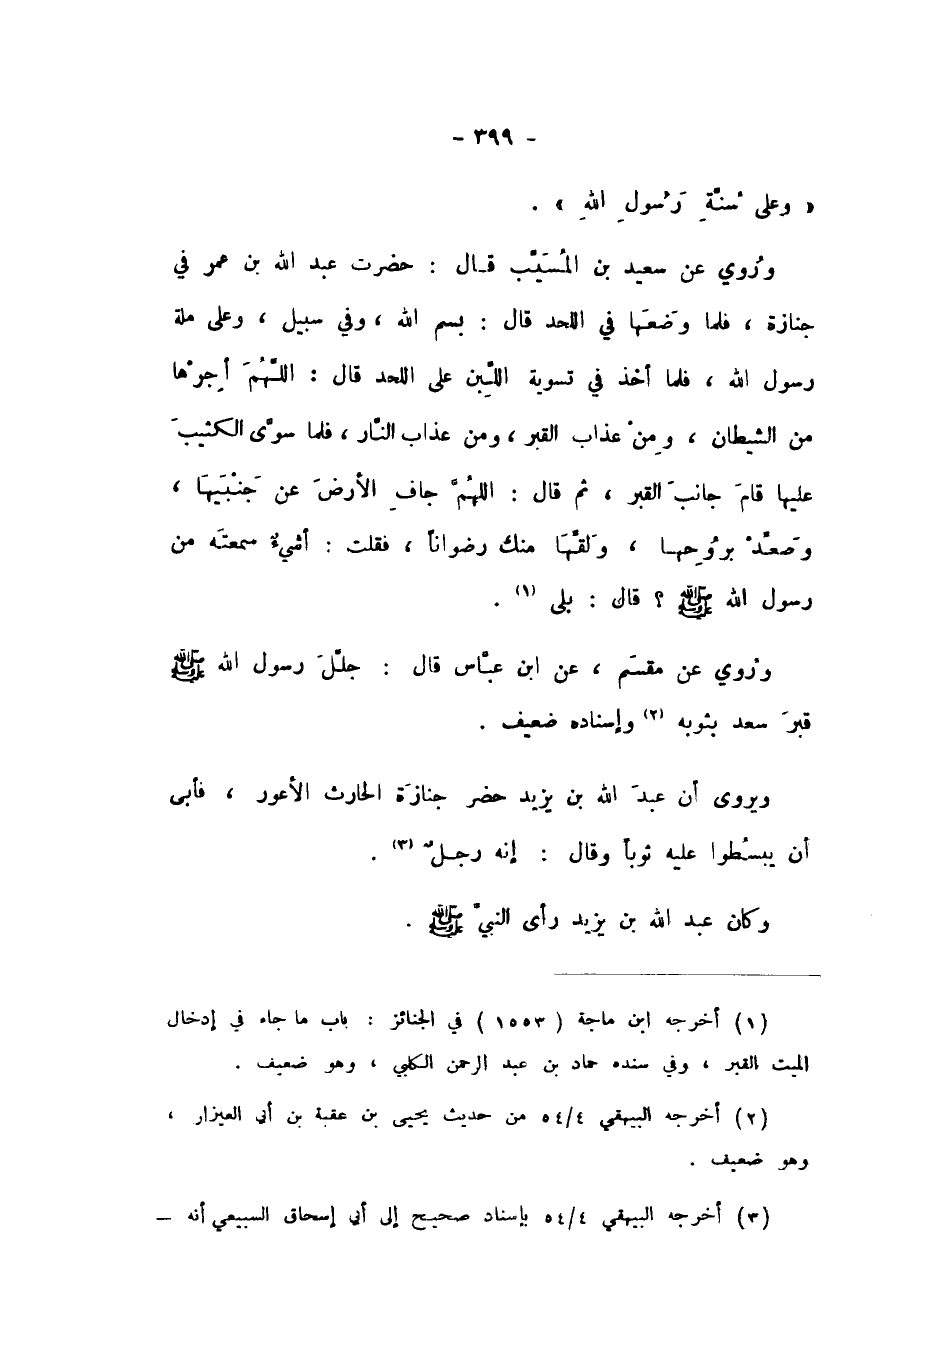 - ٣٩٩ -
« وعلى سُنَّةِ رَسُولِ اللهِ » .
ورُوي عن سعيد بن المُسَيَّب قال : حضرت عبد الله بن عمر في
جنازة ، فلما وضَعَها في اللحد قال : بسم الله ، وفي سبيل ، وعلى ملة
رسول الله ، فلما أخذ في تسوية اللَّبِن على اللحد قال : اللَّهُمَ أجِرْها
من الشيطان ، ومِنْ عذاب القبر ، ومن عذاب النَّار ، فلما سوَّى الكثيبَ
عليها قامَ جانبَ القبر ، ثم قال : اللهُمَّ جافِ الأرضَ عن جَنْبَيهَا ،
وصَعِّدْ برُوحِها ، ولَقِّهَا منك رضواناً ، فقلت : أشيءٌ سمعتَه من
رسول الله ﷺ ؟ قال : بلى (١) .
ورُوي عن مقسَم ، عن ابن عبَّاس قال : جلَّلَ رسول الله ﷺ
قبرَ سعد بثوبه (٢) وإسناده ضعيف .
ويروى أن عبدَ الله بن يزيد حضر جنازَة الحارث الأعور ، فأبى
أن يبسُطوا عليه ثوباً وقال : إنه رجلٌ (٣) .
وكان عبد الله بن يزيد رأى النبيَّ ﷺ .
(١) أخرجه ابن ماجة ( ١٥٥٣ ) في الجنائز : باب ما جاء في إدخال
الميت القبر ، وفي سنده حماد بن عبد الرحمن الكلبي ، وهو ضعيف .
(٢) أخرجه البيهقي ٥٤/٤ من حديث يحيى بن عقبة بن أبي العيزار ،
وهو ضعيف .
(٣) أخرجه البيهقي ٥٤/٤ بإسناد صحيح إلى أبي إسحاق السبيعي أنه –